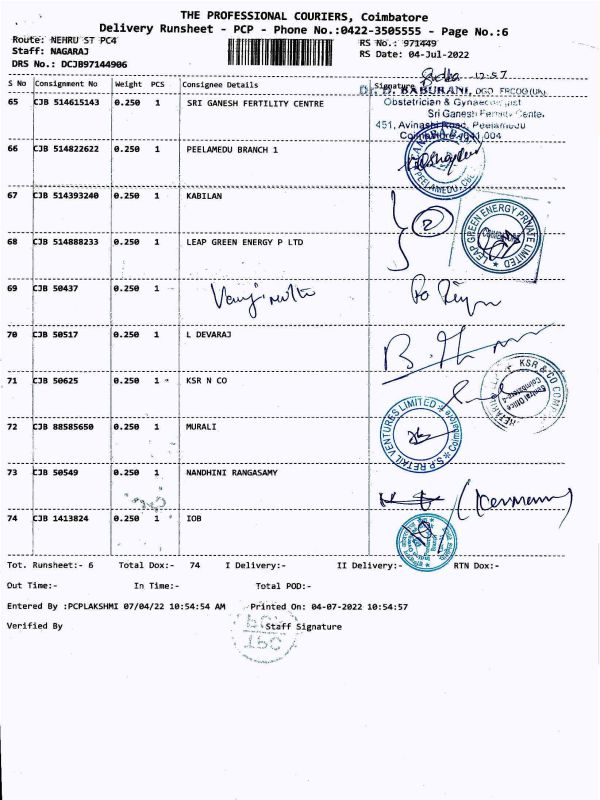 THE PROFESSIONAL COURIERS, Coimbatore
Delivery Runsheet - PCP - Phone No.:0422-3505555 - Page No.:6
Route: NEHRU ST PC4 RS No.: 971449
Staff: NAGARAJ RS Date: 04-Jul-2022
DRS No.: DCJB97144906
12.57
S No Consignment No Weight PCS Consignee Details Signature
65 CJB 514615143 0.250 1 SRI GANESH FERTILITY CENTRE
Obstetrician & Gynaecologist
Sri Ganesh Fertility Centre
451, Avinashi Road, Peelamedu
Coimbatore-641 004
66 CJB 514822622 0.250 1 PEELAMEDU BRANCH 1
CANARA BANK
PEELAMEDU, CBE
67 CJB 514393240 0.250 1 KABILAN
2
LEAP GREEN ENERGY PRIVATE LIMITED
68 CJB 514888233 0.250 1 LEAP GREEN ENERGY P LTD
69 CJB 50437 0.250 1
70 CJB 50517 0.250 1 L DEVARAJ
71 CJB 50625 0.250 1 KSR N CO
KSR & CO
Central Office
Coimbatore
72 CJB 88585650 0.250 1 MURALI
S.P RETAIL VENTURES LIMITED
Coimbatore
73 CJB 50549 0.250 1 NANDHINI RANGASAMY
74 CJB 1413824 0.250 1 IOB
Tot. Runsheet:- 6 Total Dox:- 74 I Delivery:- II Delivery:- RTN Dox:-
Out Time:- In Time:- Total POD:-
Entered By :PCPLAKSHMI 07/04/22 10:54:54 AM Printed On: 04-07-2022 10:54:57
Verified By Staff Signature